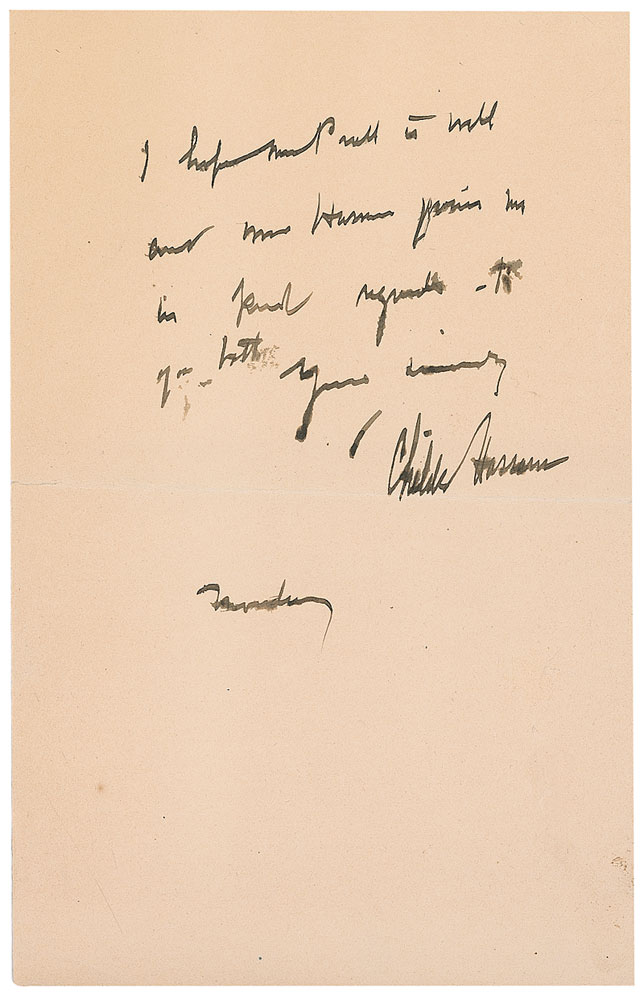 I hope that all is well
and Mrs Hassam joins me
in kind regards - to
you - both Yours sincerely
Childe Hassam
Thursday